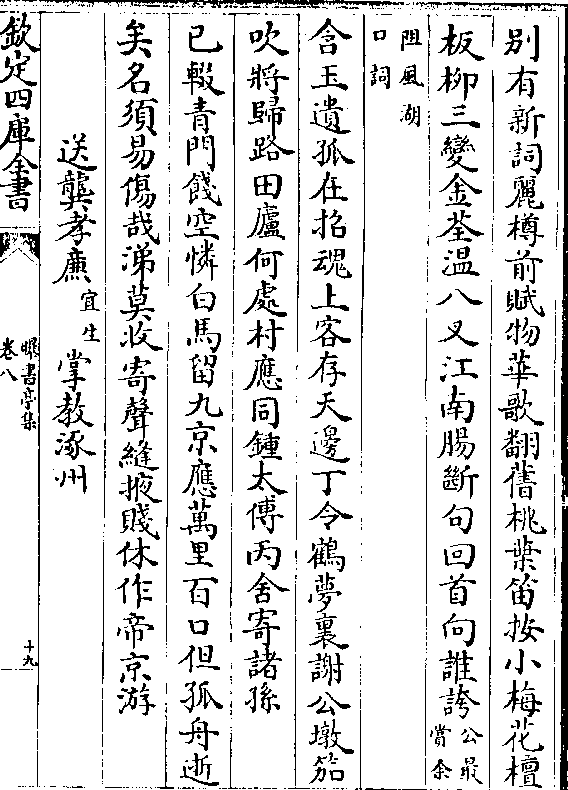 別有新詞麗樽前賦物華歌翻舊桃葉笛按小梅花檀
板柳三變金荃溫八叉江南腸斷句回首向誰誇公最賞余
阻風湖口詞
含玉遺孤在招魂上客存天邊丁令鶴夢裏謝公墩笳
吹將歸路田廬何處村應同鍾太傅丙舍寄諸孫
已輟青門餞空憐白馬留九京應萬里百口但孤舟逝
矣名須易傷哉涕莫收寄聲縫掖賤休作帝京游
送龔孝廉宜生掌教涿州
欽定四庫全書
曝書亭集
卷八
十九